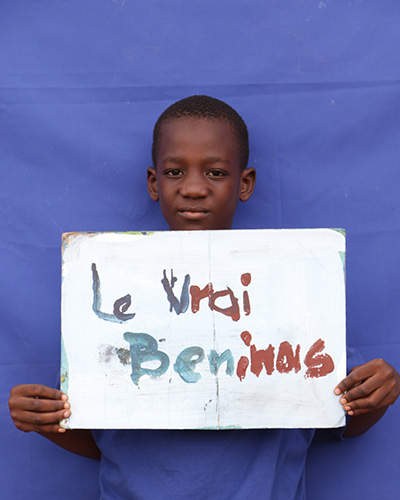 Le Vrai
Beninois